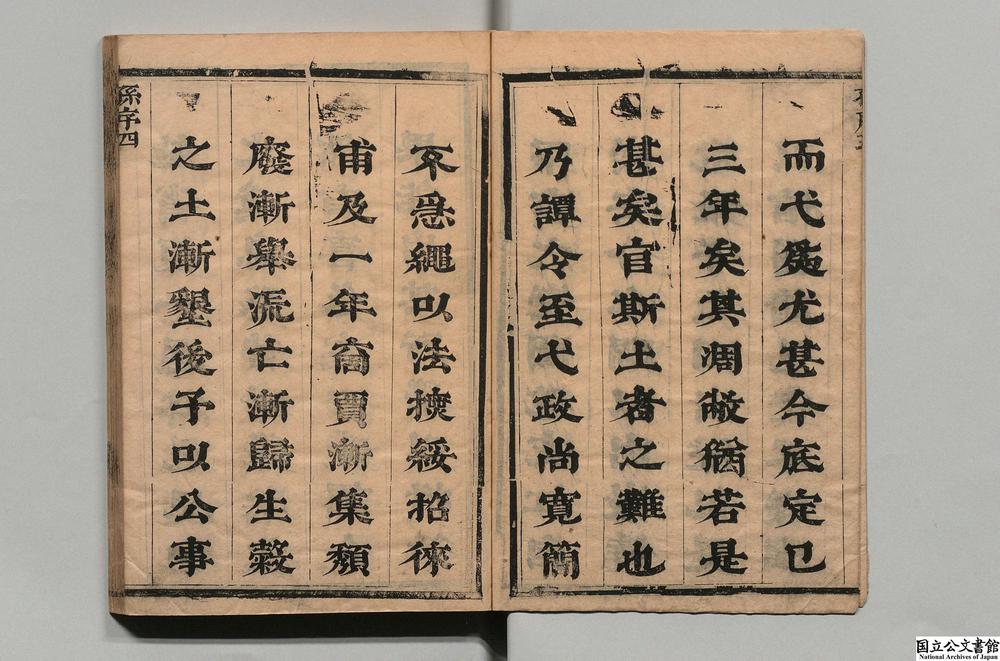 而弋爲尤甚今底定已
三年矣其凋敝猶若是
甚矣官斯土者之難也
乃譚令至弋政尚寬簡
不急繩以法撫綏招徠
甫及一年商賈漸集頽
廢漸舉流亡漸歸生穀
之土漸墾後予以公事
孫序四
国立公文書館
National Archives of Japan